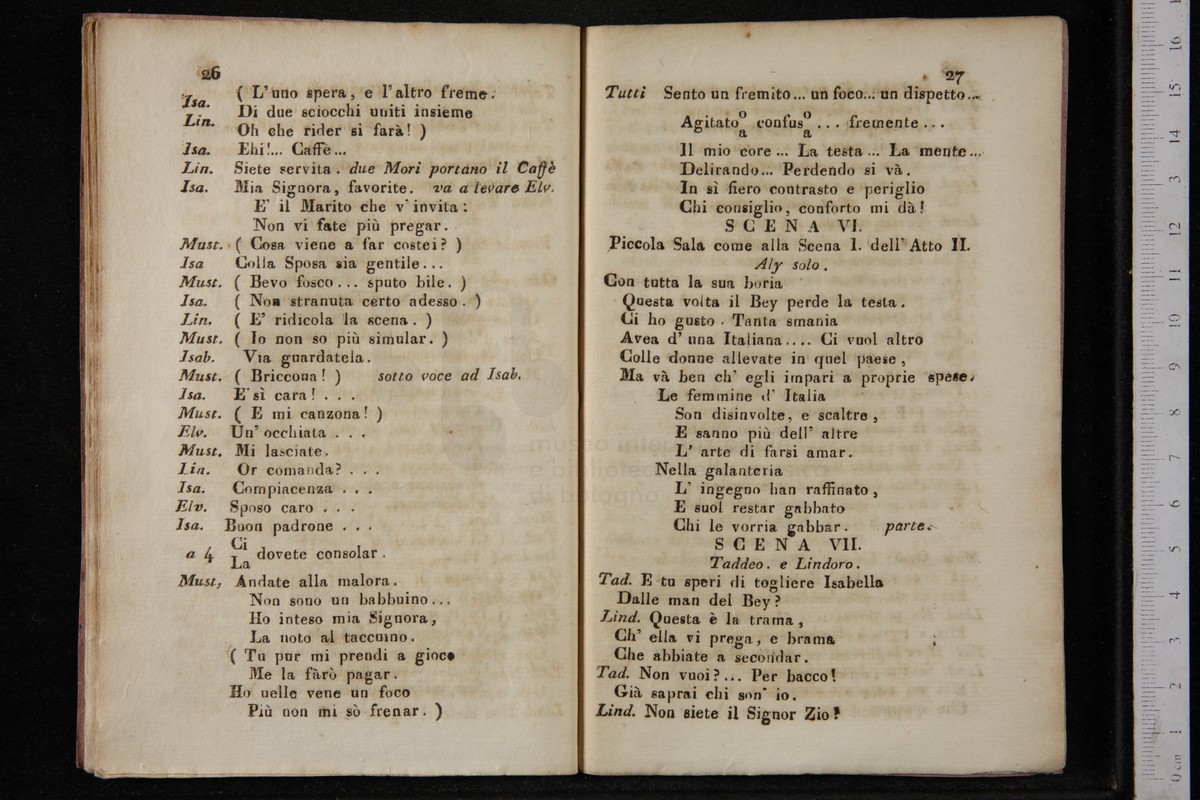 26
Isa. ( L'uno spera, e l'altro freme.
Lin. Di due sciocchi uniti insieme
Oh che rider si farà! )
Isa. Ehi!... Caffè...
Lin. Siete servita. due Mori portano il Caffè
Isa. Mia Signora, favorite. va a levare Elv.
E' il Marito che v'invita:
Non vi fate più pregar.
Must. ( Cosa viene a far costei? )
Isa Colla Sposa sia gentile...
Must. ( Bevo fosco... sputo bile. )
Isa. ( Non stranuta certo adesso. )
Lin. ( E' ridicola la scena. )
Must. ( Io non so più simular. )
Isab. Via guardatela.
Must. ( Briccona! ) sotto voce ad Isab.
Isa. E' sì cara! . . .
Must. ( E mi canzona! )
Elv. Un' occhiata . . .
Must. Mi lasciate.
Lin. Or comanda? . . .
Isa. Compiacenza . . .
Elv. Sposo caro . . .
Isa. Buon padrone . . .
a 4 Ci
La dovete consolar.
Must, Andate alla malora.
Non sono un babbuino...
Ho inteso mia Signora,
La noto al taccuino.
( Tu pur mi prendi a gioco
Me la fàrò pagar.
Ho nelle vene un foco
Più non mi sò frenar. )
27
Tutti Sento un fremito... un foco... un dispetto...
Agitato/a confuso/a . . . fremente . . .
Il mio core... La testa... La mente...
Delirando... Perdendo si và.
In sì fiero contrasto e periglio
Chi consiglio, conforto mi dà!
SCENA VI.
Piccola Sala come alla Scena I. dell' Atto II.
Aly solo.
Con tutta la sua boria
Questa volta il Bey perde la testa.
Ci ho gusto. Tanta smania
Avea d' una Italiana.... Ci vuol altro
Colle donne allevate in quel paese,
Ma và ben ch' egli impari a proprie spese.
Le femmine d' Italia
Son disinvolte, e scaltre,
E sanno più dell' altre
L' arte di farsi amar.
Nella galanteria
L' ingegno han raffinato,
E suol restar gabbato
Chi le vorria gabbar. parte.
SCENA VII.
Taddeo. e Lindoro.
Tad. E tu speri di togliere Isabella
Dalle man del Bey?
Lind. Questa è la trama,
Ch' ella vi prega, e brama
Che abbiate a secondar.
Tad. Non vuoi?... Per bacco!
Già saprai chi son' io.
Lind. Non siete il Signor Zio?
museo
e biblioteca
di bologna
0 cm 1 2 3 4 5 6 7 8 9 10 11 12 13 14 15 16